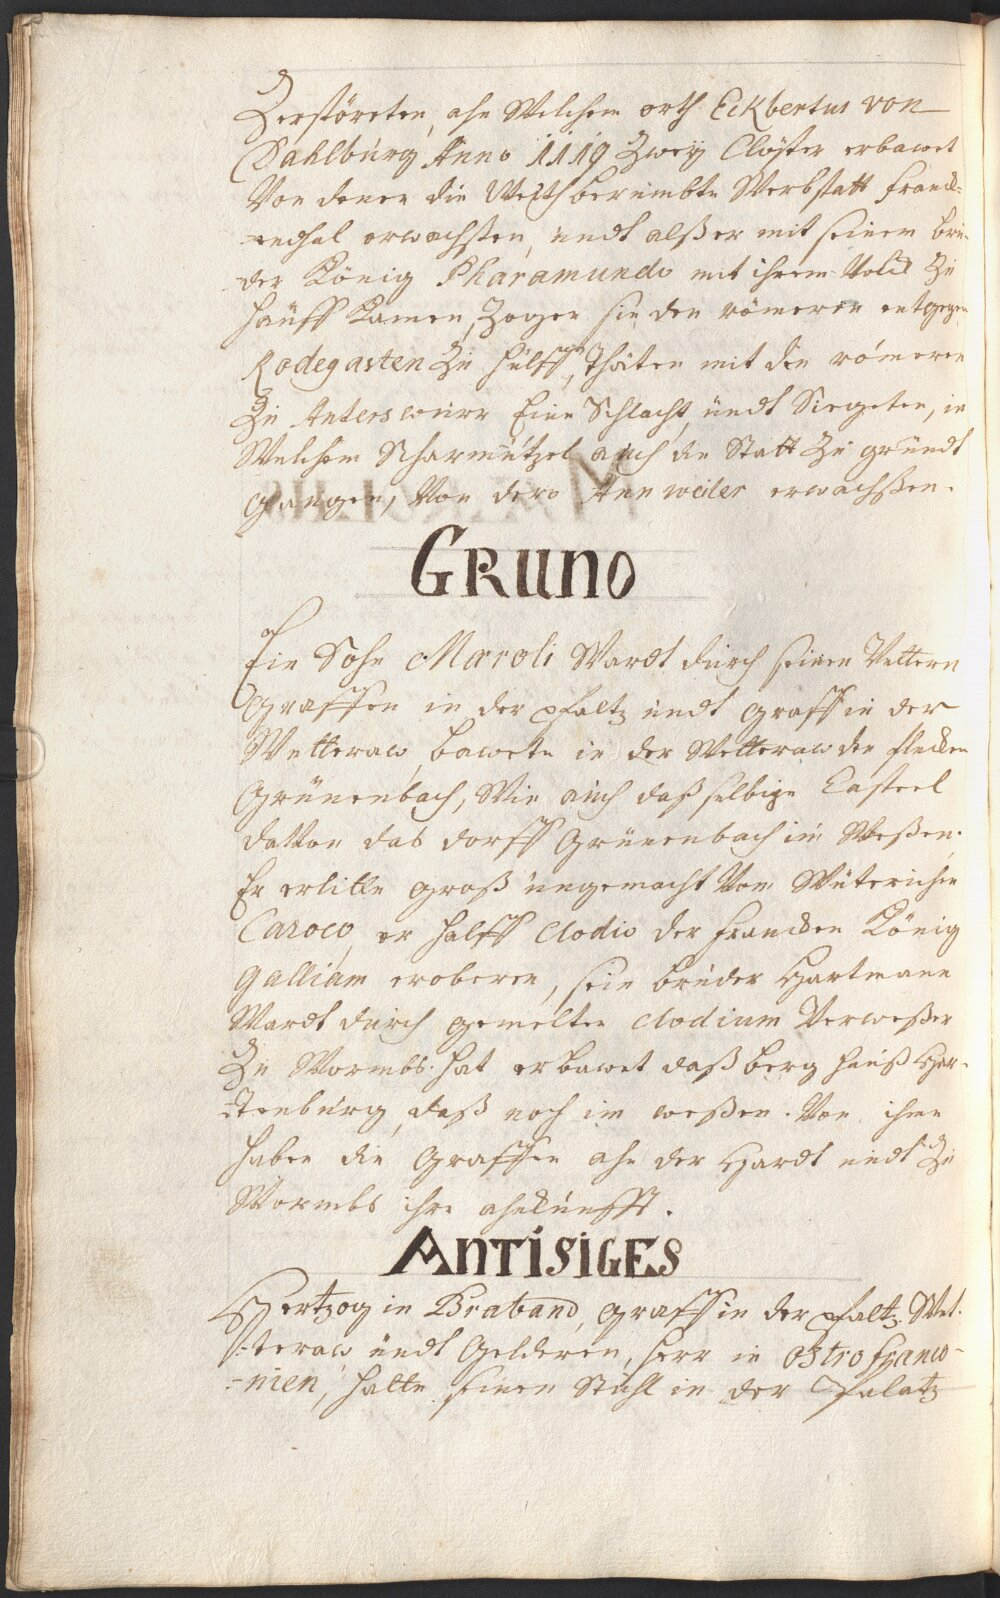 Zerstöreten, ahn Welchem orth Eckbertus von
Dahlburg Anno 1119 Zwey Clöster erbawet
Von denen die Weith berümbte Werbstatt Franck-
-endhal erwachsten, undt alß er mit seinem bru-
der König Pharamundo mit ihrem Volck Zu
hauff Kamen, Zogen sie den römeren entgegen
Rodegasten Zu hülff, Thäten mit den römeren
Zu Anterswürr Eine Schlacht, undt Siegeten, in
Welchem Scharmützel auch die Statt Zu grundt
gangen, Von dero Annweiler erwachßen.
GRUNO
Ein Sohn Maroli Wardt durch seinen Vettern
Graffen in der Pfaltz undt graff in der
Wetteraw, bawete in der Wetteraw den flecken
Grünenbach, Wie auch daß selbige Casteel
datvon das dorff Grünenbach im Weßen.
Er erlitte groß ungemacht Vom Wüterichen
Caroco, er halff Clodio der francken König
Galliam eroberen, sein bruder Hartmann
Wardt durch gemelten Clodium Verweßer
Zu Wormbs. hat erbawet daß berg hauß Har-
-tenburg, daß noch im weßen. Von ihme
haben die Graffen ahn der Hardt undt Zu
Wormbs ihre ahnkunfft.
ANTISIGES
Hertzog in Braband, graff in der pfaltz. Wet-
-teraw undt Gelderen, herr in Ostrofranco-
-nien, hatte seinen Stuhl in der Pfalatz